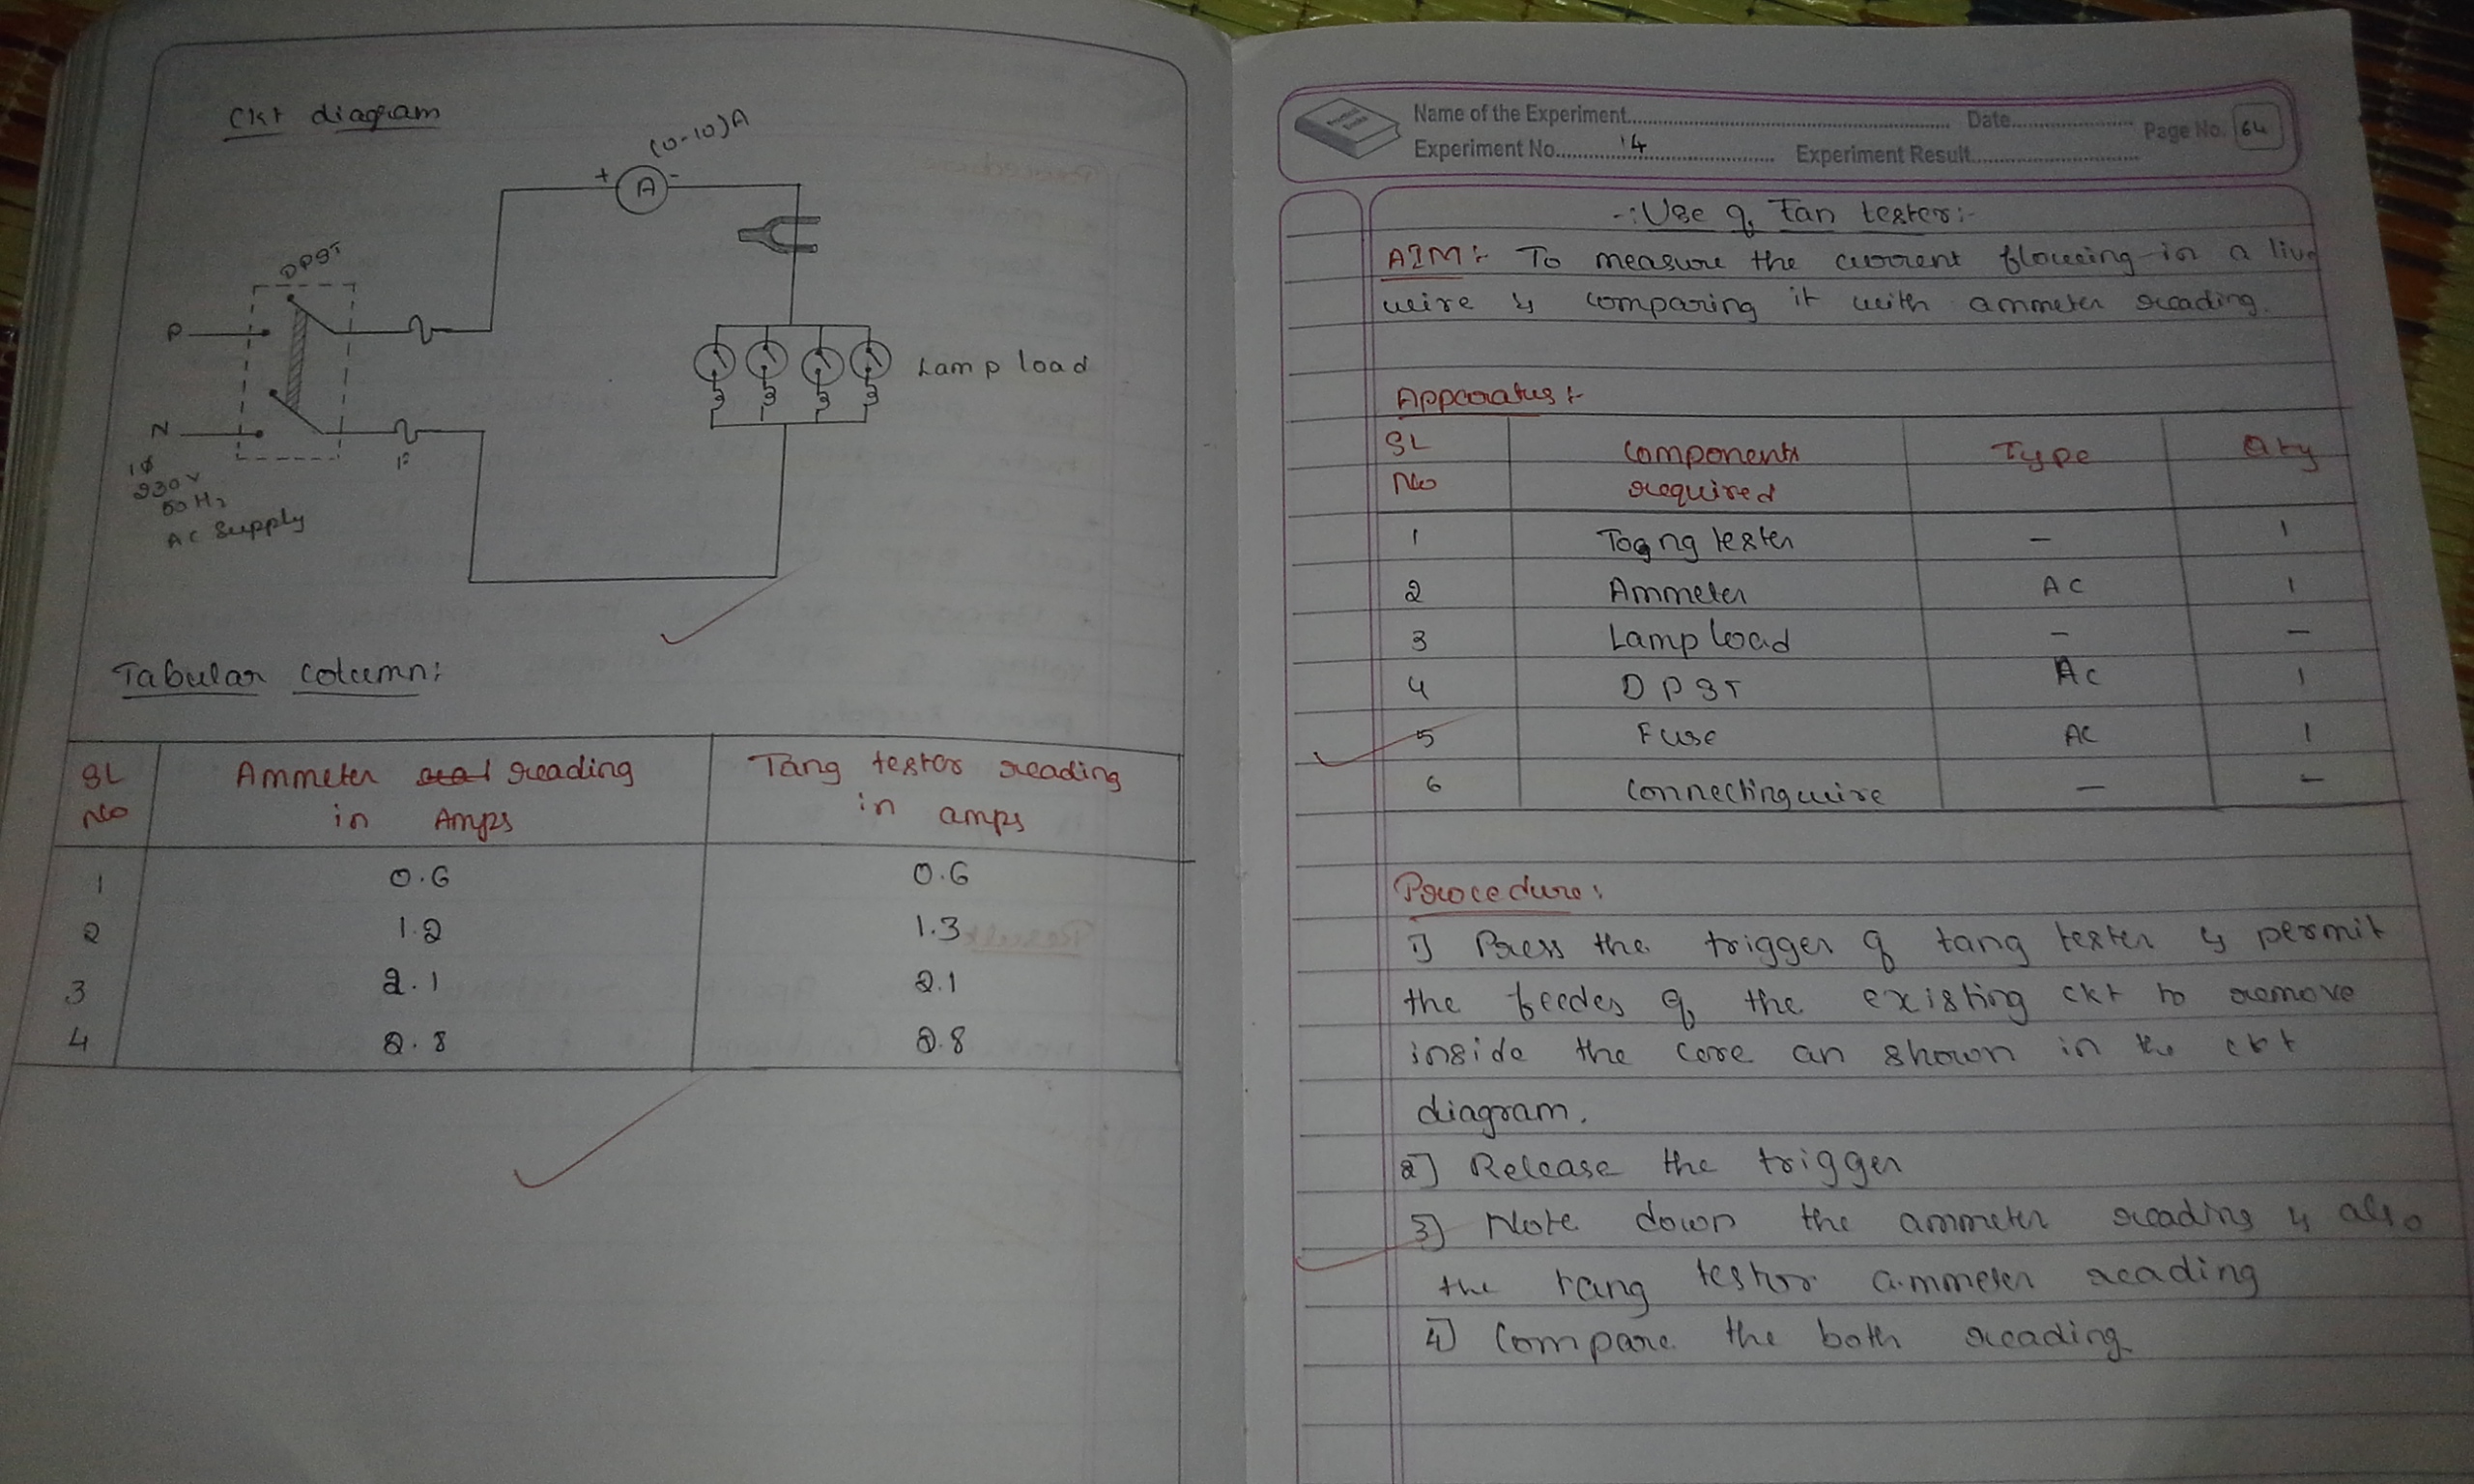 Ckt diagram
(0-10)A
+ A -
DPST
P
Lamp load
N
F
1ϕ
230V
50 Hz
AC Supply
Tabular column:
SL No
Ammeter reading in Amps
Tang tester reading in amps
1 0.6 0.6
2 1.2 1.3
3 2.1 2.1
4 2.8 2.8
Name of the Experiment Date Page No. 64
Experiment No. 14 Experiment Result
-: Use of Tan tester:-
AIM:- To measure the current flowing in a live
wire & comparing it with ammeter reading.
Apparatus:-
SL No
Components required
Type
Qty
1 Toang tester — 1
2 Ammeter AC 1
3 Lamp load — —
4 DPST AC 1
5 Fuse AC 1
6 Connecting wire — —
Procedure:
1] Press the trigger of tang tester & permit
the feedes of the existing ckt to remove
inside the core an shown in the ckt
diagram.
2] Release the trigger
3] Note down the ammeter reading & also
the tang tester ammeter reading
4] Compare the both reading.